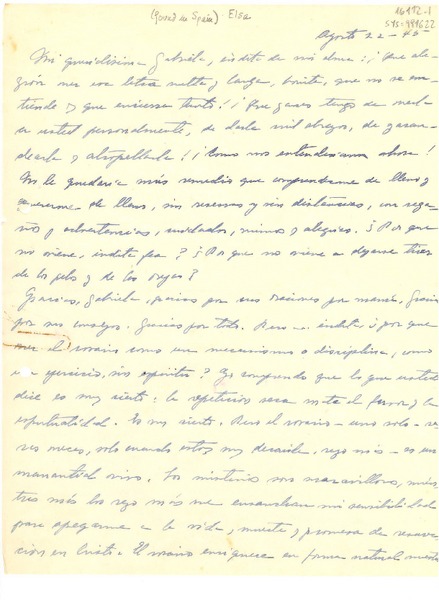 (Possot in Spain) Elsa
16172-1
Agosto 22 - 45
Mi queridísima Gabriela, indita de mi alma: ¡Que ale-
grón me era letra suelta y larga, bonita, que no se en-
tiende y que encierra tanto! ¡Que ganas tengo de verla
a usted personalmente, de darle mil abrazos, de zaran-
dearla y atropellarla! ¡Como nos entenderíamos ahora!
No le quedaría más remedio que comprenderme de lleno y
quererme de lleno, sin reservas y sin distancias, con rega-
ños y advertencias, cuidados, mimos y alegrías. ¿Por que
no viene, indita fea? ¿Por que no viene a dejarse tirar
de los pelos y de las orejas?
Gracias, Gabriela, gracias por sus oraciones por mamá. Gracias
por sus consejos. Gracias por todo. Pero indita ¿por que
el rosario como un mecanismo o disciplina, como
un ejercicio, sin espíritu? Yo comprendo que lo que usted
dice es muy cierto: la repetición seca mata el fervor y la
espiritualidad. Es muy cierto. Pero el rosario - uno solo -
veces, solo cuando estoy muy decaída, rezo más - es un
manantial vivo. Los misterios son maravillosos, mien-
tras más los rezo más me ensanchan mi sensibilidad
para apegarme a la vida, muerte y promesa de resurrec-
ción en Cristo. El rosario enriquece en forma natural nuestra